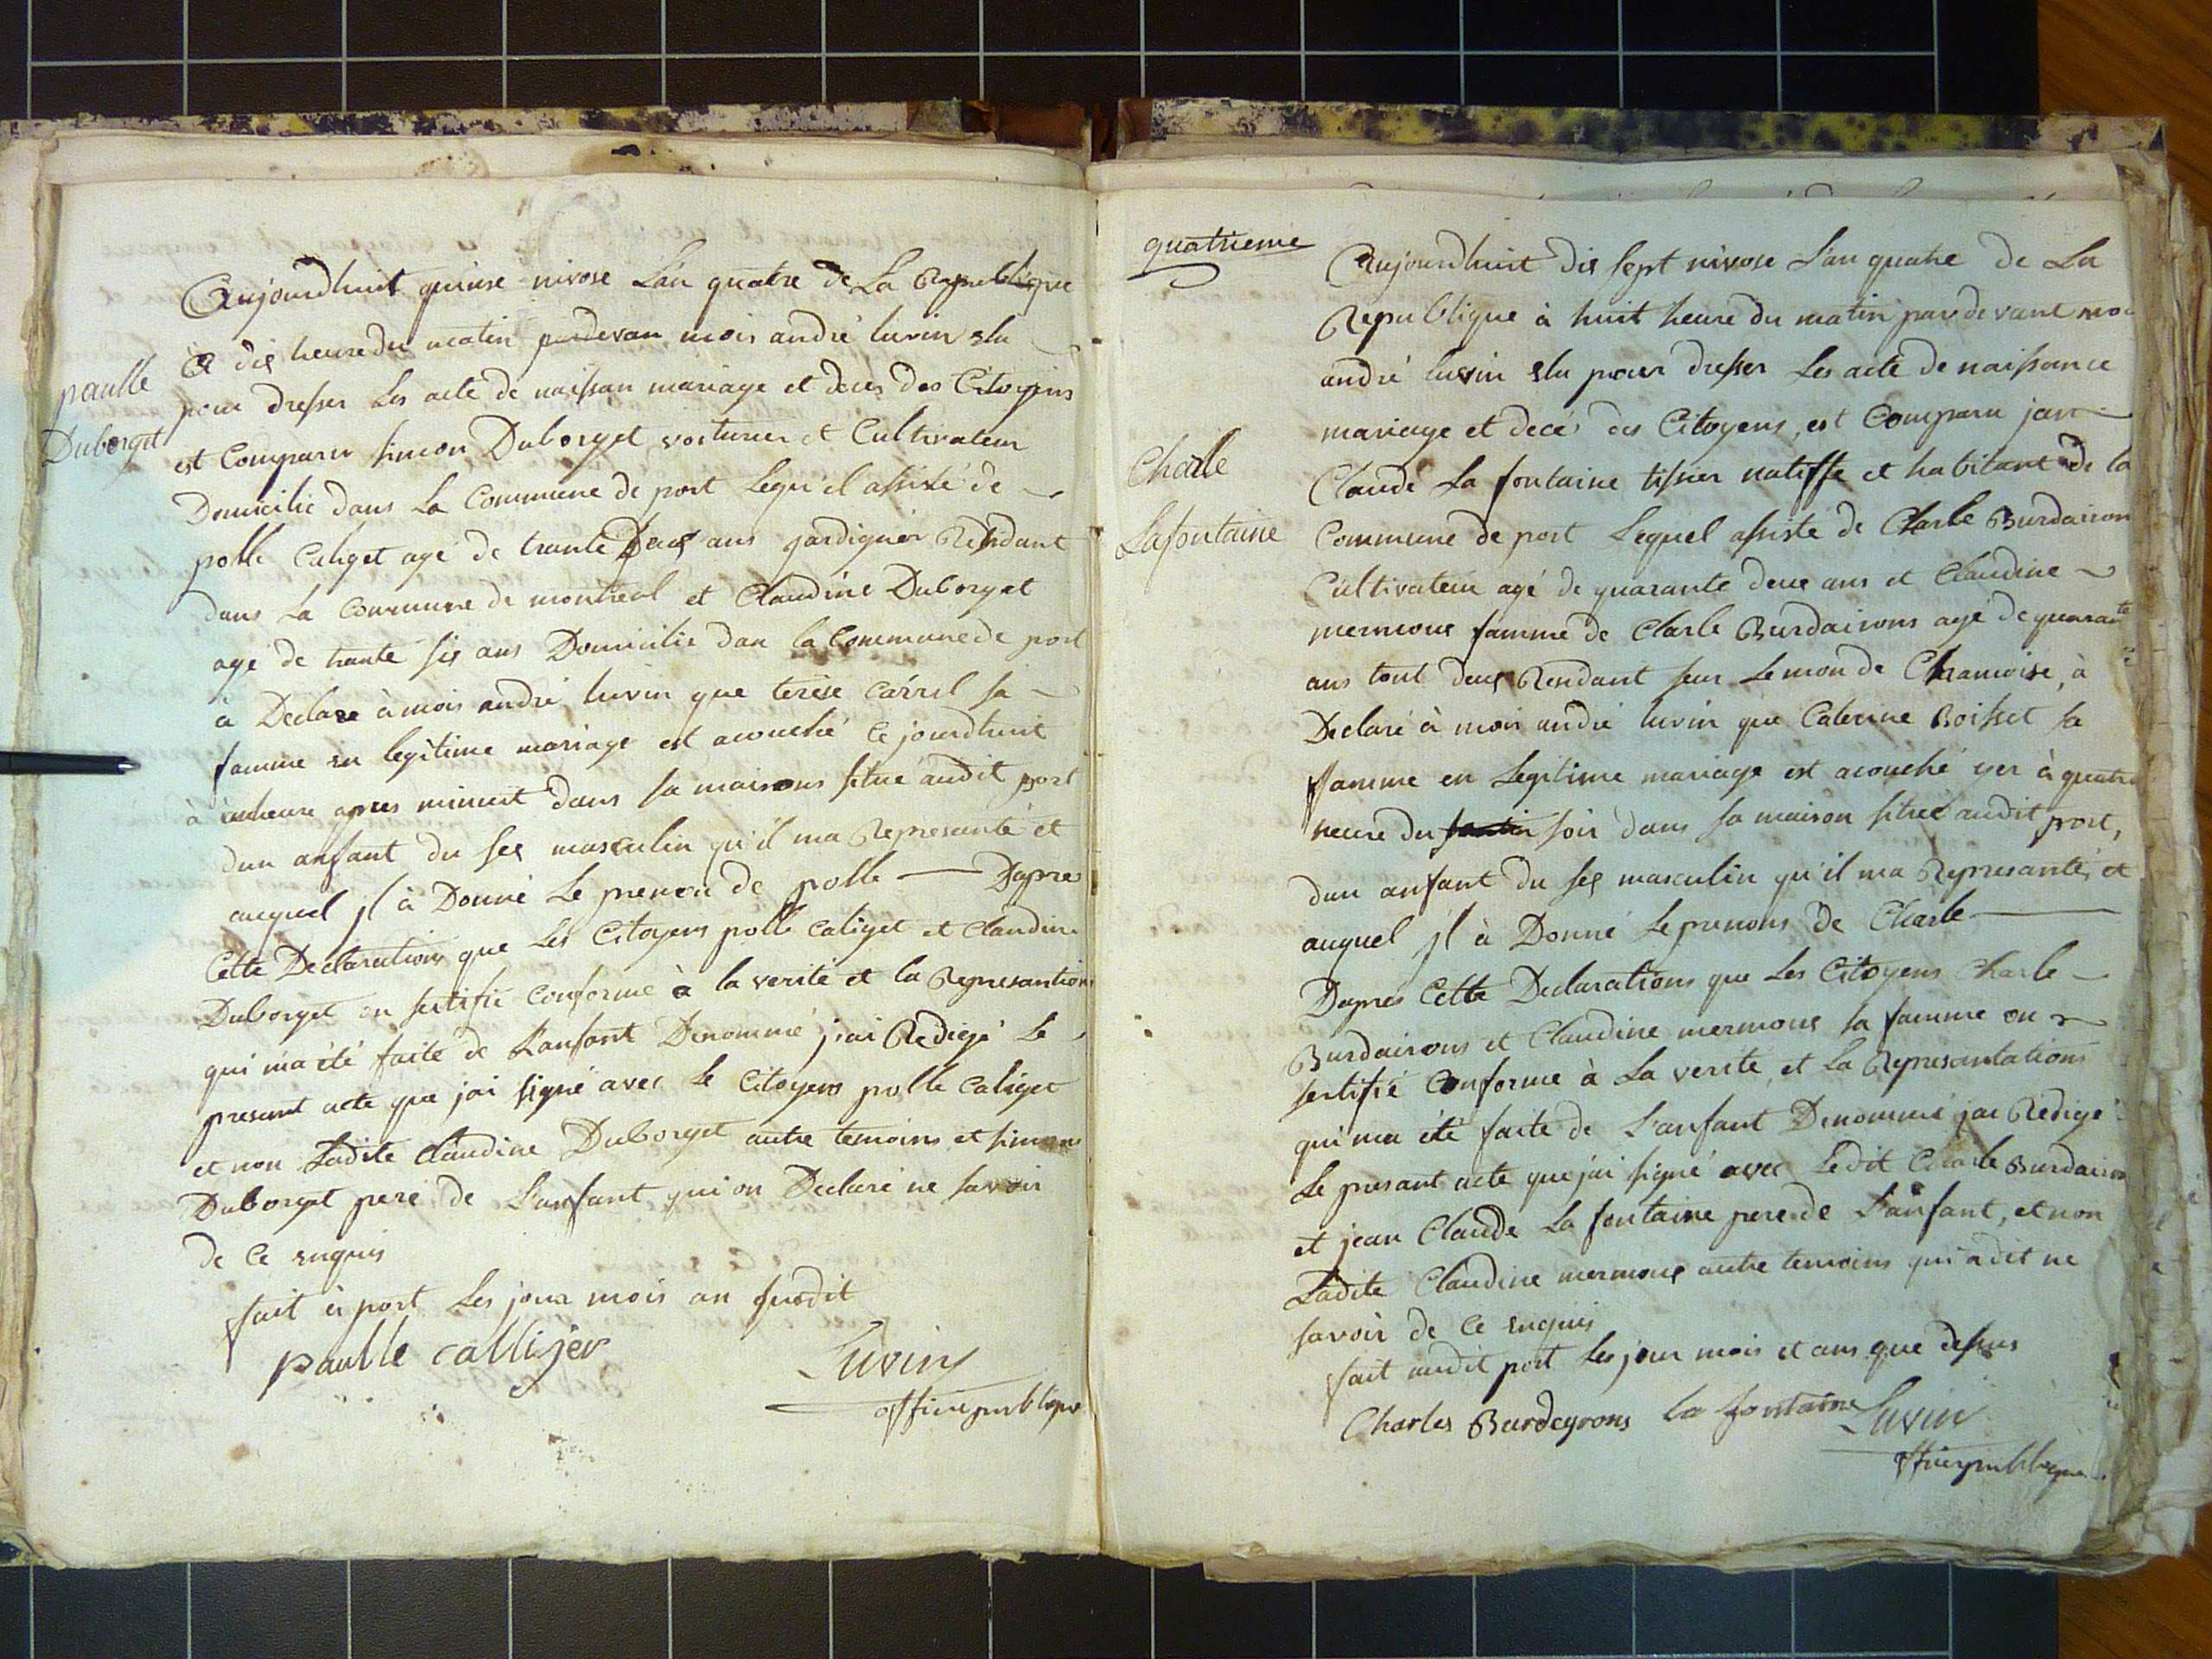 paulle
Duborget
Aujourdhuit quinse nivose L'an quatre de La Republique
à dix heure du matin pardevan mois andré luvin elu
pour dresser Les acte de naissan mariage et deces des Citoyens
est Comparu simon Duborget voiturier et Cultivateur
Domicilié dans La Commune de port Lequ'el assisté de
polle Caliget agé de trante Deux ans jardignier Residant
dans La Commune de montreal et Claudine Duborget
agé de trante six ans Domicilié dan la Commune de port
à Declare à mois andré luvin que terèse Carrel sa
famme en legitime mariage est acouché Ce jourdhuit
à unheure apres minuit dans sa maisons situé audit port
dun anfant du sex masculin qu'il ma Represanté et
auquel jl à Donné Le prenon de polle — Dapres
Cette Declarations que Les Citoyens polle Caliget et Claudine
Duborget on sertifié Conforme à la verité et la Represantions
qui ma été faite de L'anfant Denommé j'ai Redigé Le
presant acte que jai signé avec Le Citoyens polle Caliget
et non Ladite Claudine Duborget autre temoins et simons
Duborget pere de L'anfant qui on Declaré ne savoir
de Ce enquis
fait à port Les jour mois an susdit
paulle callijer
Luvin
officiepublique
quatrieme
Charle
Lafontaine
Aujourdhuit dix sept nivose L'an quatre de La
Republique à huit heure du matin pardevant moi
andré luvin elu pour dresser Les acte de naissance
mariage et decé des Citoyens, est Comparu jan
Claude La fontaine tissier natiffe et habitant de la
Commune de port Lequel assisté de Charle Burdairon
Cultivateur agé de quarante deux ans et Claudine
mermoux famme de Charle Burdairons agé de quarante
ans tout deux Rendant sur Le mon de Chamoise, à
Declaré à mois andré luvin que Caterine Boisset sa
famme en Legitime mariage est acouché yer à quatre
heure du soir dans sa maison situé audit port,
dun anfant du sex masculin qu'il ma Represanté, et
auquel jl à Donné Le prenons de Charle —
Dapres Cette Declarations que Les Citoyens Charle
Burdairons et Claudine mermoux sa famme on
sertifié Conforme à La verite, et La Represantations
qui ma été faite de L'anfant Denommé jai Redigé
Le presant acte que jai signé avec Ledit Charle Burdairon
et jean Claude La fontaine pere de L'anfant, et non
Ladite Claudine mermoux autre temoins qui a dit ne
savoir de Ce enquis
fait audit port Les jour mois et ans que dessus
Charles Burdeyrons la fontaine Luvin
officiepublique